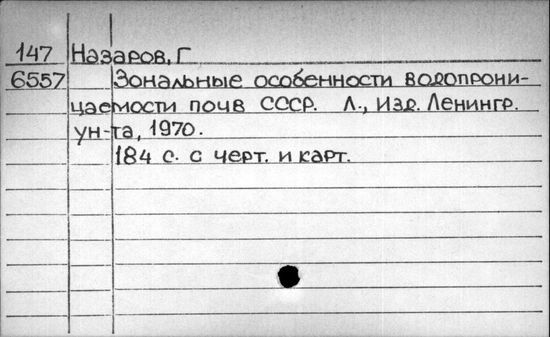 147 Назаров, Г
6557 Зональные особенности водопрони-
цаемости почв СССР. Л., Изд. Ленингр.
ун-та, 1970.
184 с. с черт. и карт.